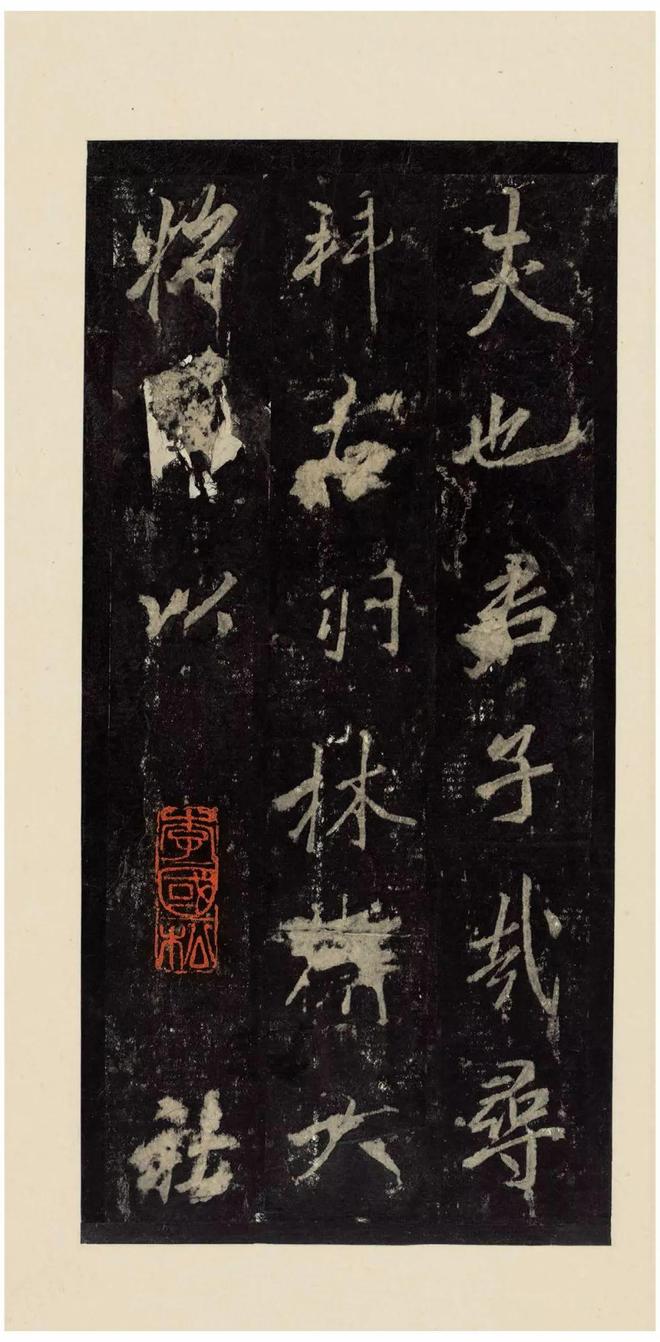 也君子哉尋
拜右羽林衛大
將以社
李國松